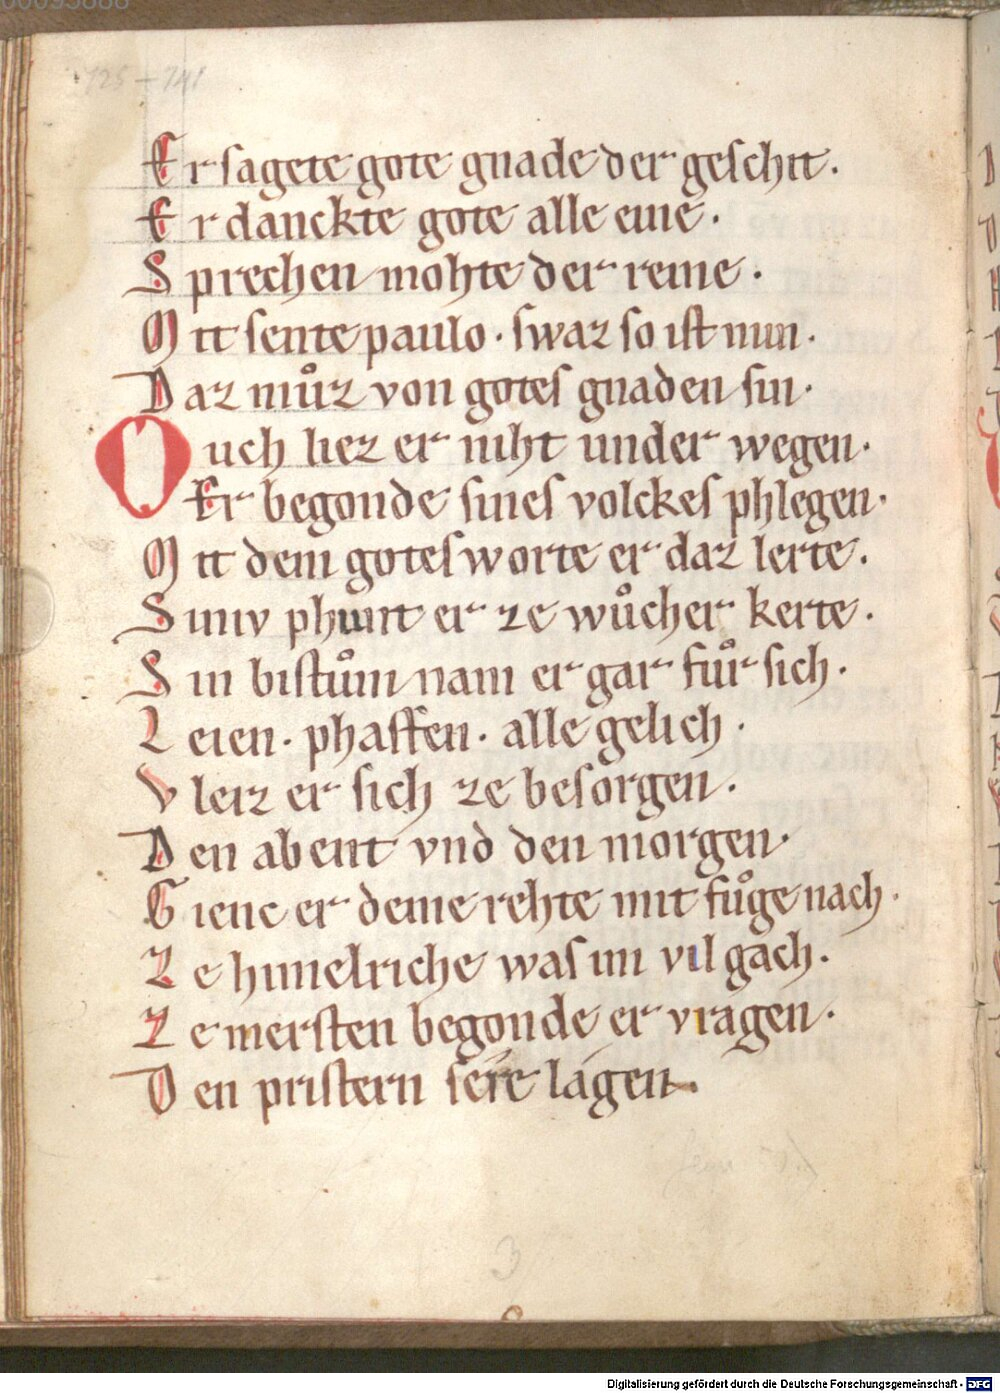 125-741
Er sagete gote gnade der geschit.
Er danckte gote alle eine.
Sprechen mohte der reine.
Mit sente paulo. swaz so ist min.
Daz muͦz von gotes gnaden sin.
Ouch liez er niht under wegen.
Er begonde sines volckes phlegen.
Mit dem gotes worte er daz lerte.
Siniv phunt er ze wuͦcher kerte.
Sin bistuͦm nam er gar fuͦr sich.
Leien. phaffen. alle gelich.
Vleiz er sich ze besorgen.
Den abent vnd den morgen.
Gienc er deme rehte mit fuͦge nach.
Ze himelriche was im vil gach.
Ze mersten begonde er vragen.
Den pristern sere lagen.
3
Digitalisierung gefördert durch die Deutsche Forschungsgemeinschaft - DFG